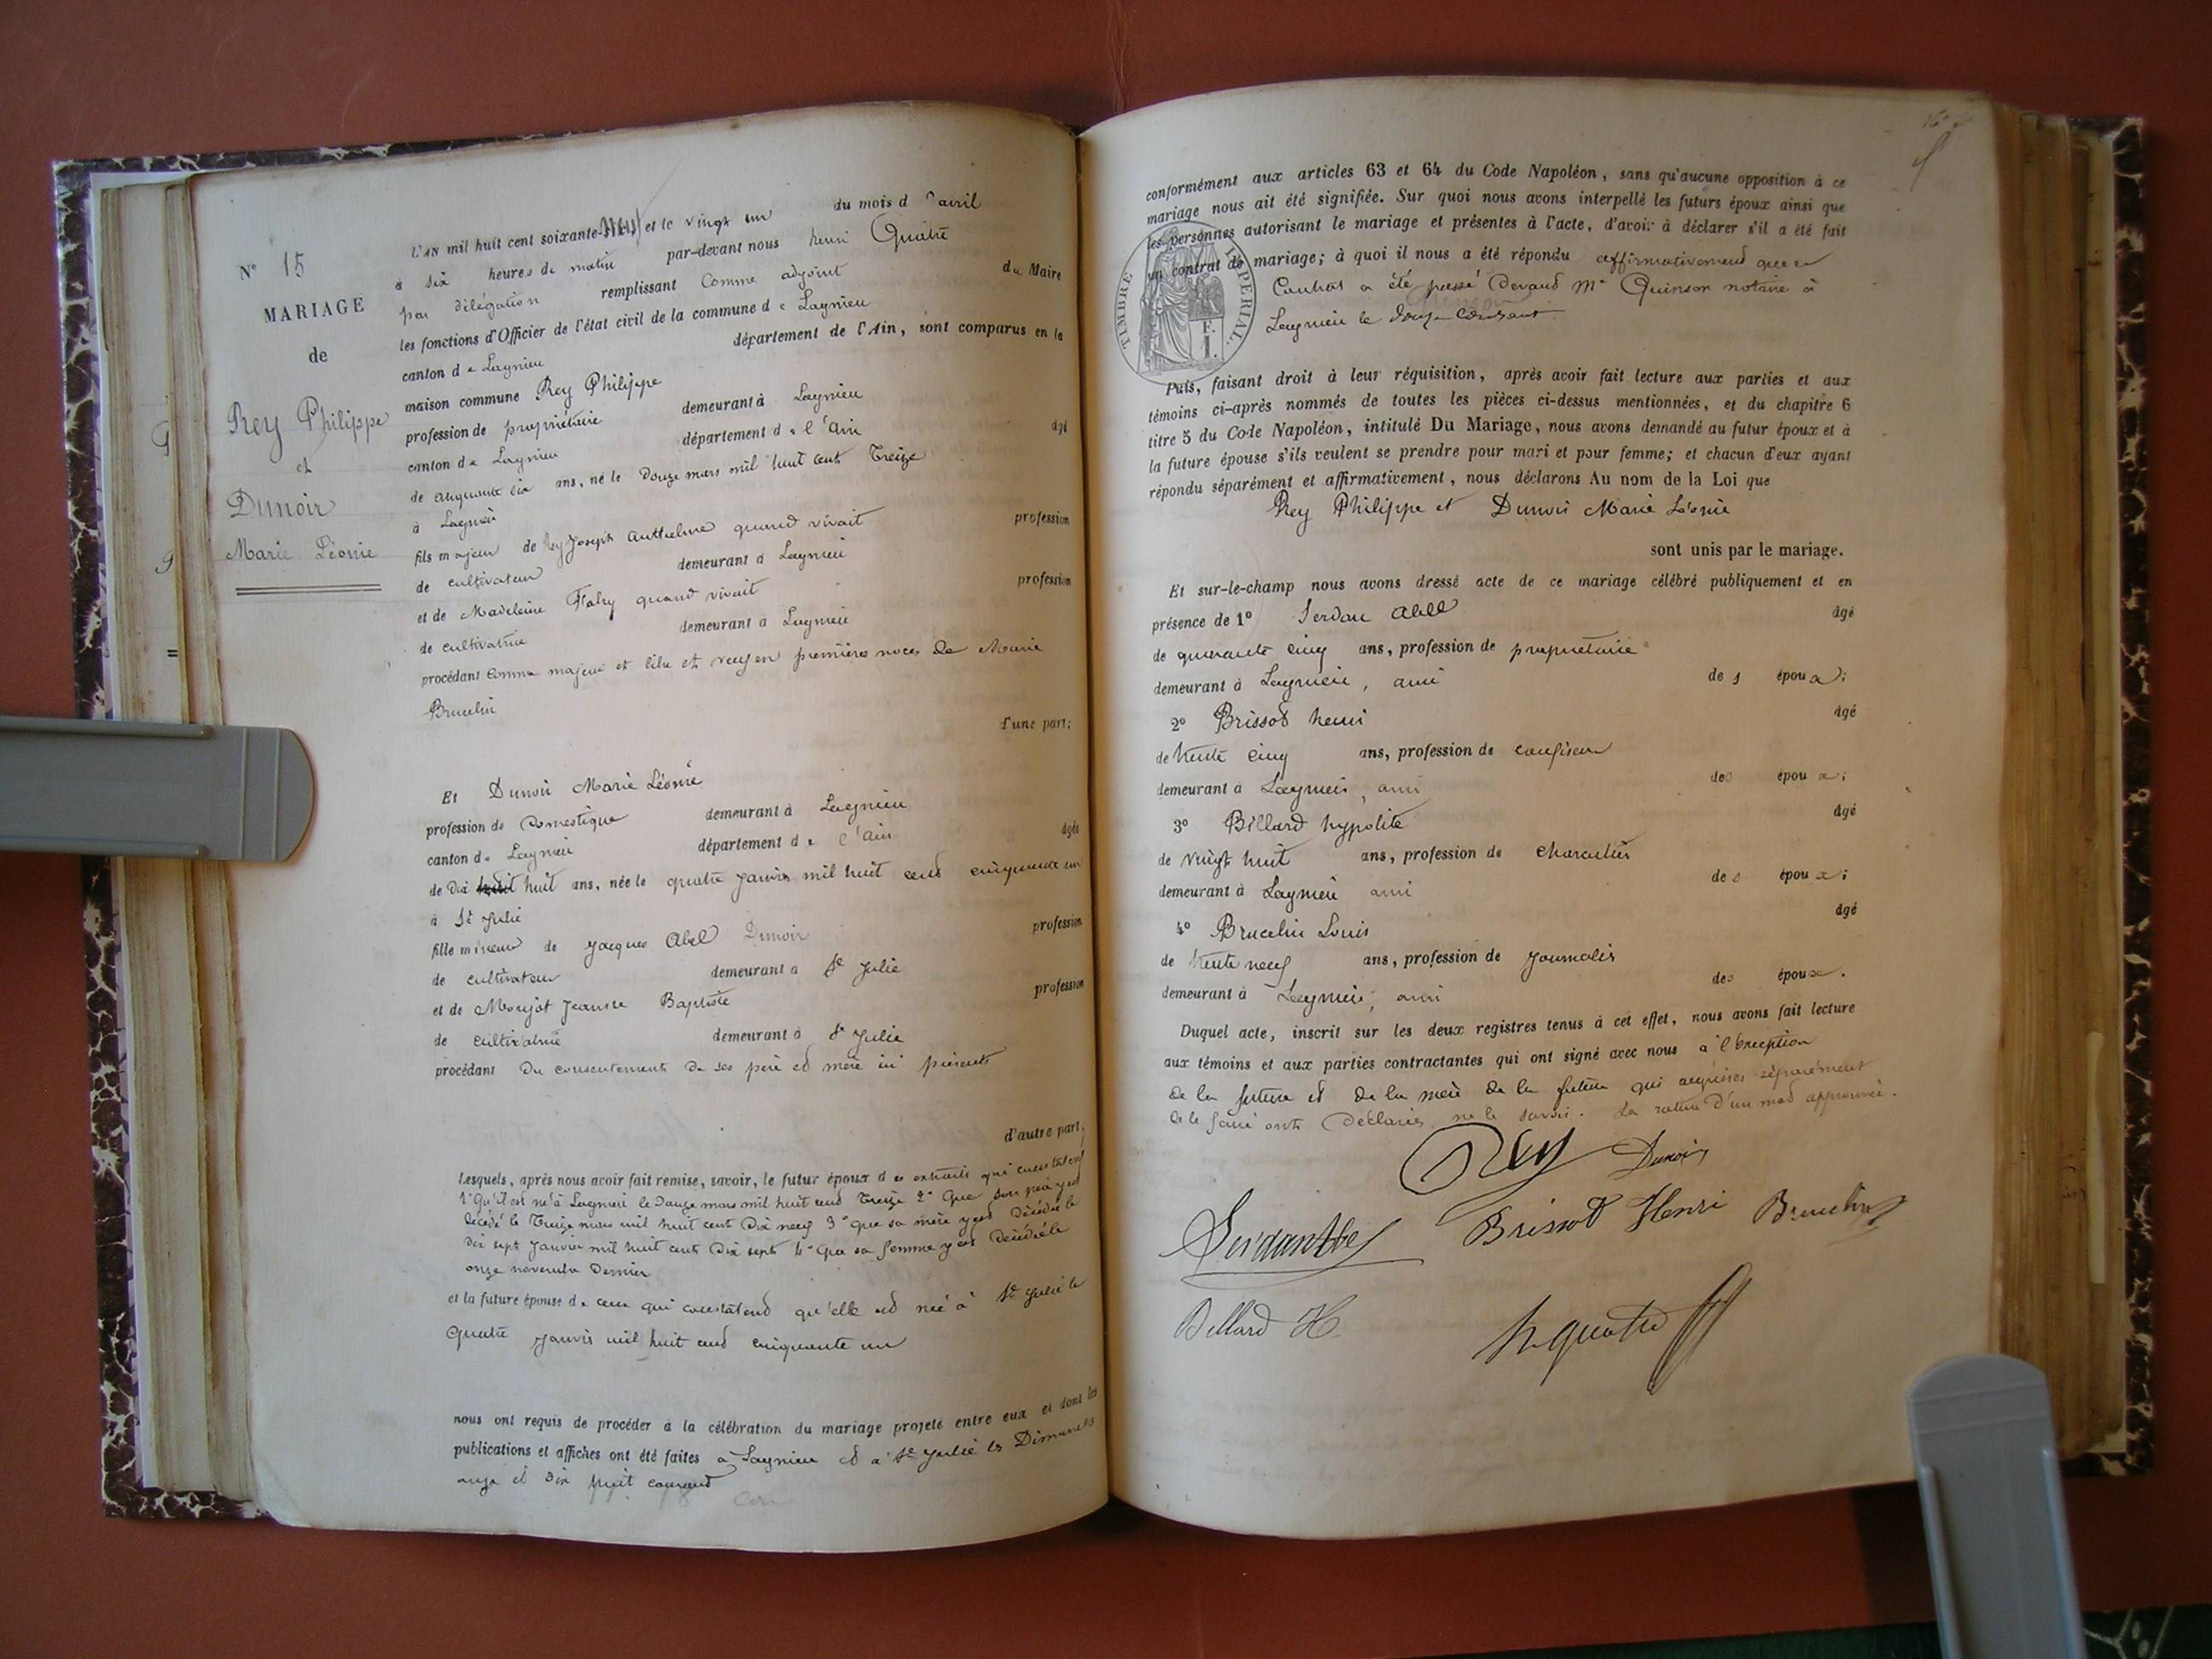 N° 15
MARIAGE
de
Rey Philippe
et
Dunoir
Marie Léonie
L'AN mil huit cent soixante-neuf et le vingt un du mois d'avril
à six heures du matin par-devant nous henri Quatre
par délégation remplissant comme adjoint du Maire
les fonctions d'Officier de l'état civil de la commune de Lagnieu
canton de Lagnieu département de l'Ain, sont comparus en la
maison commune Rey Philippe
profession de propriétaire demeurant à Lagnieu
canton de Lagnieu département de l'Ain âgé
de cinquante six ans, né le Douze mars mil huit cent Treize
à Lagnieu
fils majeur de Rey Joseph Anthelme quand vivait profession
de cultivateur demeurant à Lagnieu
et de Madeleine Falry quand vivait profession
de cultivatrice demeurant à Lagnieu
procédant comme majeur et libre et veuf en premières noces de Marie
Brucelin
d'une part;
Et Dunoir Marie Léonie
profession de Domestique demeurant à Lagnieu
canton de Lagnieu département de l'Ain âgée
de Dix huit huit ans, née le quatre Janvier mil huit cent cinquante un
à St Julie
fille mineure de Jacques Abel Dunoir profession
de cultivateur demeurant à Ste Julie
et de Monjot Jeanne Baptiste profession
de cultivatrice demeurant à Ste Julie
procédant Du consentement De ses père et mère ici présents
d'autre part;
Lesquels, après nous avoir fait remise, savoir, le futur époux des extraits qui constatent
1° Qu'il est né à Lagnieu le Douze mars mil huit cent Treize 2° Que son père y est
Décédé le Treize mars mil huit cent Dix neuf 3° que sa mère y est Décédée le
Dix sept Janvier mil huit cent Dix sept 4° Que sa femme y est Décédée le
onze novembre Dernier
et la future épouse de ceux qui constatent qu'elle est née à Ste Julie le
Quatre Janvier mil huit cent cinquante un
nous ont requis de procéder à la célébration du mariage projeté entre eux et dont les
publications et affiches ont été faites à Lagnieu et à Ste Julie les Dimanches
onze et Dix huit courant
conformément aux articles 63 et 64 du Code Napoléon, sans qu'aucune opposition à ce
mariage nous ait été signifiée. Sur quoi nous avons interpellé les futurs époux ainsi que
les personnes autorisant le mariage et présentes à l'acte, d'avoir à déclarer s'il a été fait
un contrat de mariage; à quoi il nous a été répondu affirmativement que ce
Contrat a été passé Devant Me Quinson notaire à
Lagnieu le Douze Courant
TIMBRE IMPERIAL.
F.
I.
Puis, faisant droit à leur réquisition, après avoir fait lecture aux parties et aux
témoins ci-après nommés de toutes les pièces ci-dessus mentionnées, et du chapitre 6
titre 5 du Code Napoléon, intitulé Du Mariage, nous avons demandé au futur époux et à
la future épouse s'ils veulent se prendre pour mari et pour femme; et chacun d'eux ayant
répondu séparément et affirmativement, nous déclarons Au nom de la Loi que
Rey Philippe et Dunoir Marie Léonie
sont unis par le mariage.
Et sur-le-champ nous avons dressé acte de ce mariage célébré publiquement et en
présence de 1° Serdan Abel âgé
de quarante cinq ans, profession de propriétaire
demeurant à Lagnieu, ami des époux;
2° Brissot henri âgé
de trente cinq ans, profession de confiseur
demeurant à Lagnieu, ami des époux;
3° Billard hypolite âgé
de vingt huit ans, profession de charcutier
demeurant à Lagnieu ami des époux;
4° Brucelin Louis âgé
de trente neuf ans, profession de Journalier
demeurant à Lagnieu, ami des époux.
Duquel acte, inscrit sur les deux registres tenus à cet effet, nous avons fait lecture
aux témoins et aux parties contractantes qui ont signé avec nous à l'Exception
de la future et de la mère de la future qui requises séparément
de le faire ont Déclarées ne le savoir. La rature D'un mot approuvée.
Rey Dunoir
Serdan Abel Brissot Henri Brucelin
Billard H. h quatre